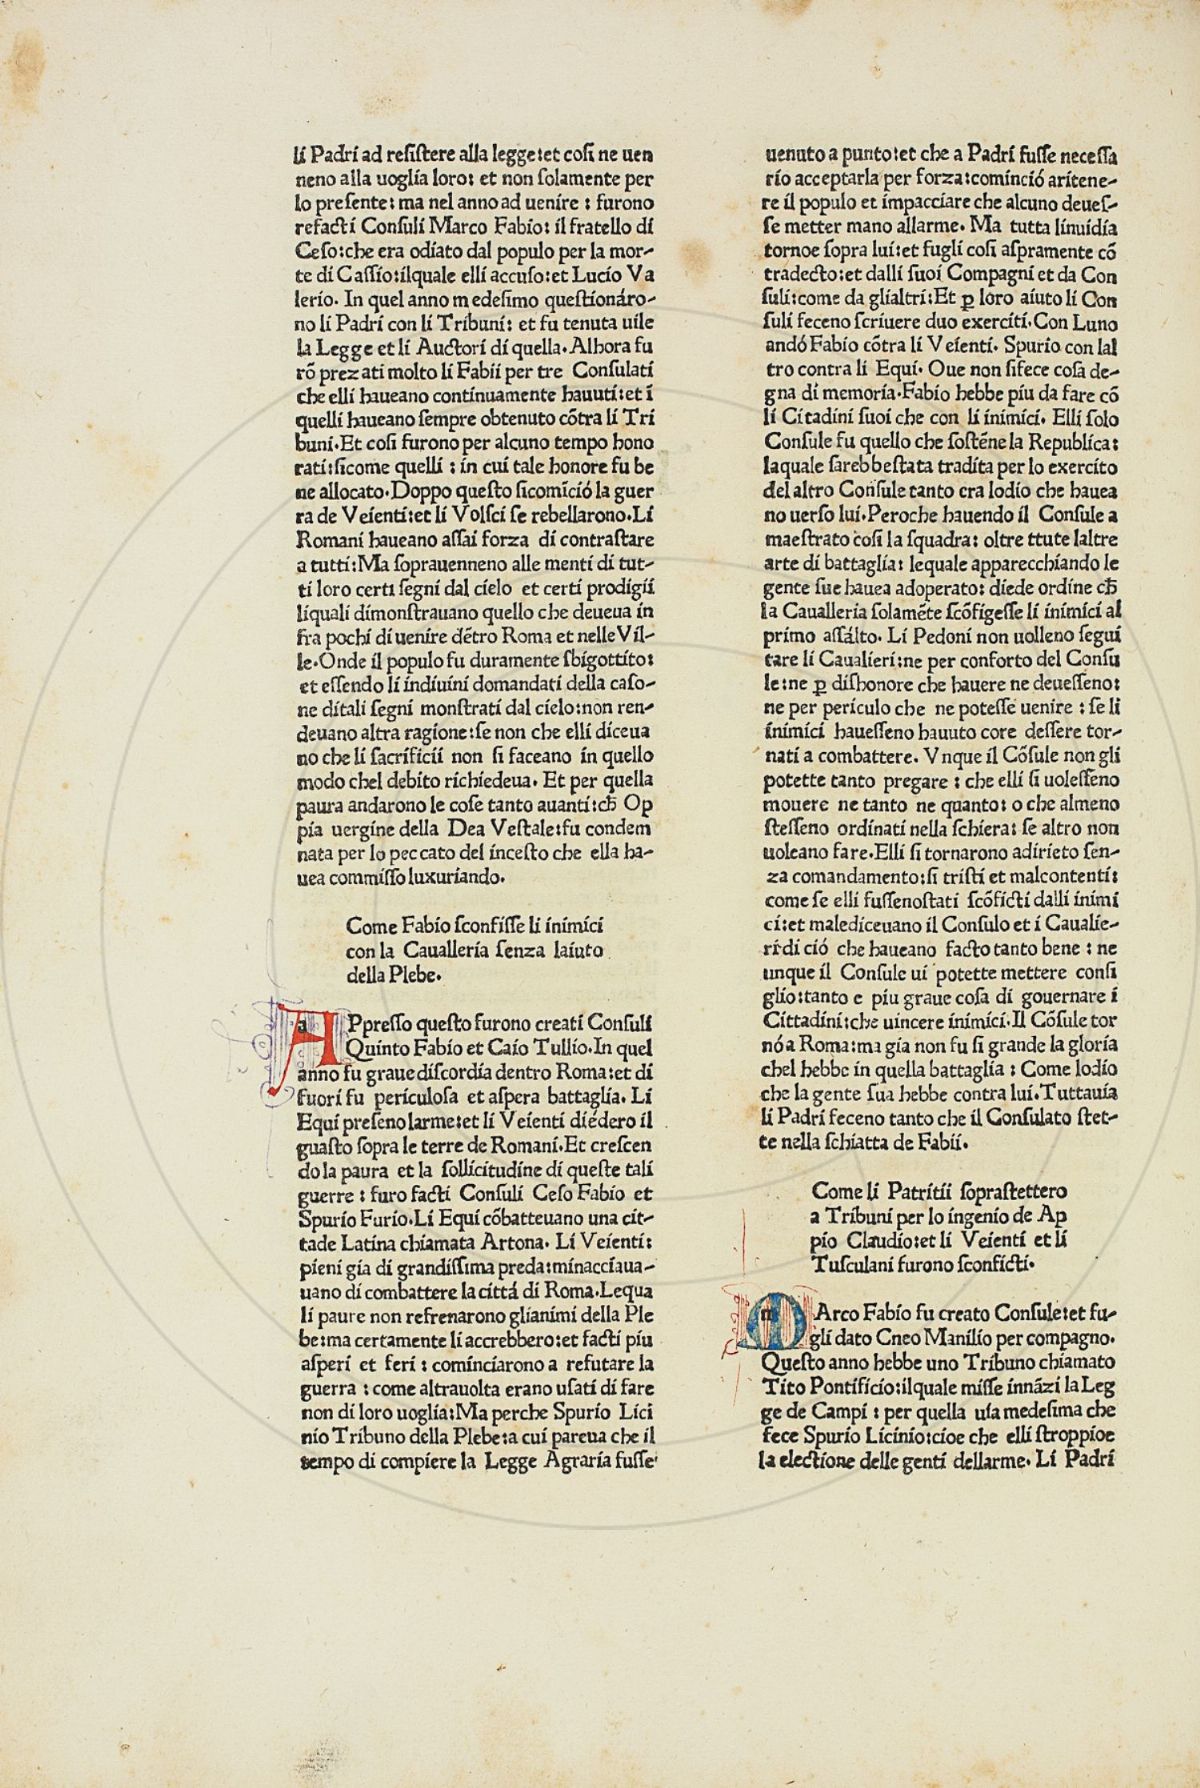 li Padri ad resistere alla legge:et cosi ne uen
neno alla uoglia loro: et non solamente per
lo presente: ma nel anno ad uenire : furono
refacti Consuli Marco Fabio: il fratello di
Ceso:che era odiato dal populo per la mor-
te di Cassio:ilquale elli accuso:et Lucio Va
lerio. In quel anno medesimo questionáro-
no li Padri con li Tribuni: et fu tenuta uile
la Legge et li Auctori di quella. Alhora fu
rõ prezati molto li Fabii per tre Consulati
che elli haueano continuamente hauuti:et i
quelli haueano sempre obtenuto cõtra li Tri
buni.Et cosi furono per alcuno tempo hono
rati:sicome quelli : in cui tale honore fu be
ne allocato.Doppo questo sicomĩció la guer
ra de Veienti:et li Volsci se rebellarono.Li
Romani haueano assai forza di contrastare
a tutti:Ma soprauenneno alle menti di tut-
ti loro certi segni dal cielo et certi prodigii
liquali dimonstrauano quello che deueua in
fra pochi di uenire dẽtro Roma et nelle Vil-
le.Onde il populo fu duramente sbigottito:
et essendo li indiuini domandati della caso-
ne ditali segni monstrati dal cielo:non ren-
deuano altra ragione:se non che elli diceua
no che li sacrificii non si faceano in quello
modo chel debito richiedeua. Et per quella
paura andarono le cose tanto auanti:cħ Op
pia uergine della Dea Vestale:fu condem
nata per lo peccato del incesto che ella ha-
uea commisso luxuriando.
Come Fabio sconfisse li inimici
con la Caualleria senza laiuto
della Plebe.
APpresso questo furono creati Consuli
Quinto Fabio et Caio Tullio.In quel
anno fu graue discordia dentro Roma:et di
fuori fu periculosa et aspera battaglia. Li
Equi preseno larme:et li Veienti diédero il
guasto sopra le terre de Romani.Et crescen
do la paura et la sollicitudine di queste tali
guerre : furo facti Consuli Ceso Fabio et
Spurio Furio.Li Equi cõbatteuano una cit-
tade Latina chiamata Artona. Li Veienti:
pieni gia di grandissima preda:minacciaua-
uano di combattere la cittá di Roma.Lequa
li paure non refrenarono glianimi della Ple
be:ma certamente li accrebbero:et facti piu
asperi et feri : cominciarono a refutare la
guerra : come altrauolta erano usati di fare
non di loro uoglia:Ma perche Spurio Lici
nio Tribuno della Plebe:a cui pareua che il
tempo di compiere la Legge Agraria fusse
uenuto a punto:et che a Padri fusse necessa
rio acceptarla per forza:cominció aritene-
re il populo et impacciare che alcuno deues-
se metter mano allarme. Ma tutta linuidia
tornoe sopra lui:et fugli cosi aspramente cõ
tradecto:et dalli suoi Compagni et da Con
suli:come da glialtri:Et ꝑ loro aiuto li Con
suli feceno scriuere duo exerciti.Con Luno
andó Fabio cõtra li Veienti. Spurio con lal
tro contra li Equi. Oue non sifece cosa de-
gna di memoria.Fabio hebbe piu da fare cõ
li Citadini suoi che con li inimici. Elli solo
Consule fu quello che sostẽne la Republica:
laquale sarebbestata tradita per lo exercito
del altro Consule tanto era lodio che hauea
no uerso lui.Peroche hauendo il Consule a
maestrato cosi la squadra: oltre ttute laltre
arte di battaglia: lequale apparecchiando le
gente sue hauea adoperato: diede ordine cħ
la Caualleria solamẽte scõfigesse li inimici al
primo assálto. Li Pedoni non uolleno segui
tare li Caualieri:ne per conforto del Consu
le:ne ꝑ dishonore che hauere ne deuesseno:
ne per periculo che ne potesse uenire : se li
inimici hauesseno hauuto core dessere tor-
nati a combattere. Vnque il Cõsule non gli
potette tanto pregare : che elli si uolesseno
mouere ne tanto ne quanto: o che almeno
stesseno ordinati nella schiera: se altro non
uoleano fare.Elli si tornarono adirieto sen-
za comandamento:si tristi et malcontenti:
come se elli fussenostati scõficti dalli inimi
ci:et malediceuano il Consulo et i Caualie-
ri di ció che haueano facto tanto bene : ne
unque il Consule ui potette mettere consi
glio:tanto e piu graue cosa di gouernare i
Cittadini:che uincere inimici.Il Cõsule tor
nó a Roma:ma gia non fu si grande la gloria
chel hebbe in quella battaglia : Come lodio
che la gente sua hebbe contra lui.Tuttauia
li Padri feceno tanto che il Consulato stet-
te nella schiatta de Fabii.
Come li Patritii soprastettero
a Tribuni per lo ingenio de Ap
pio Claudio:et li Veienti et li
Tusculani furono sconficti.
MArco Fabio fu creato Consule:et fu-
gli dato Cneo Manilio per compagno.
Questo anno hebbe uno Tribuno chiamato
Tito Pontificio:ilquale misse innãzi la Leg
ge de Campi : per quella uia medesima che
fece Spurio Licinio:cioe che elli stroppioe
la electione delle genti dellarme. Li Padri